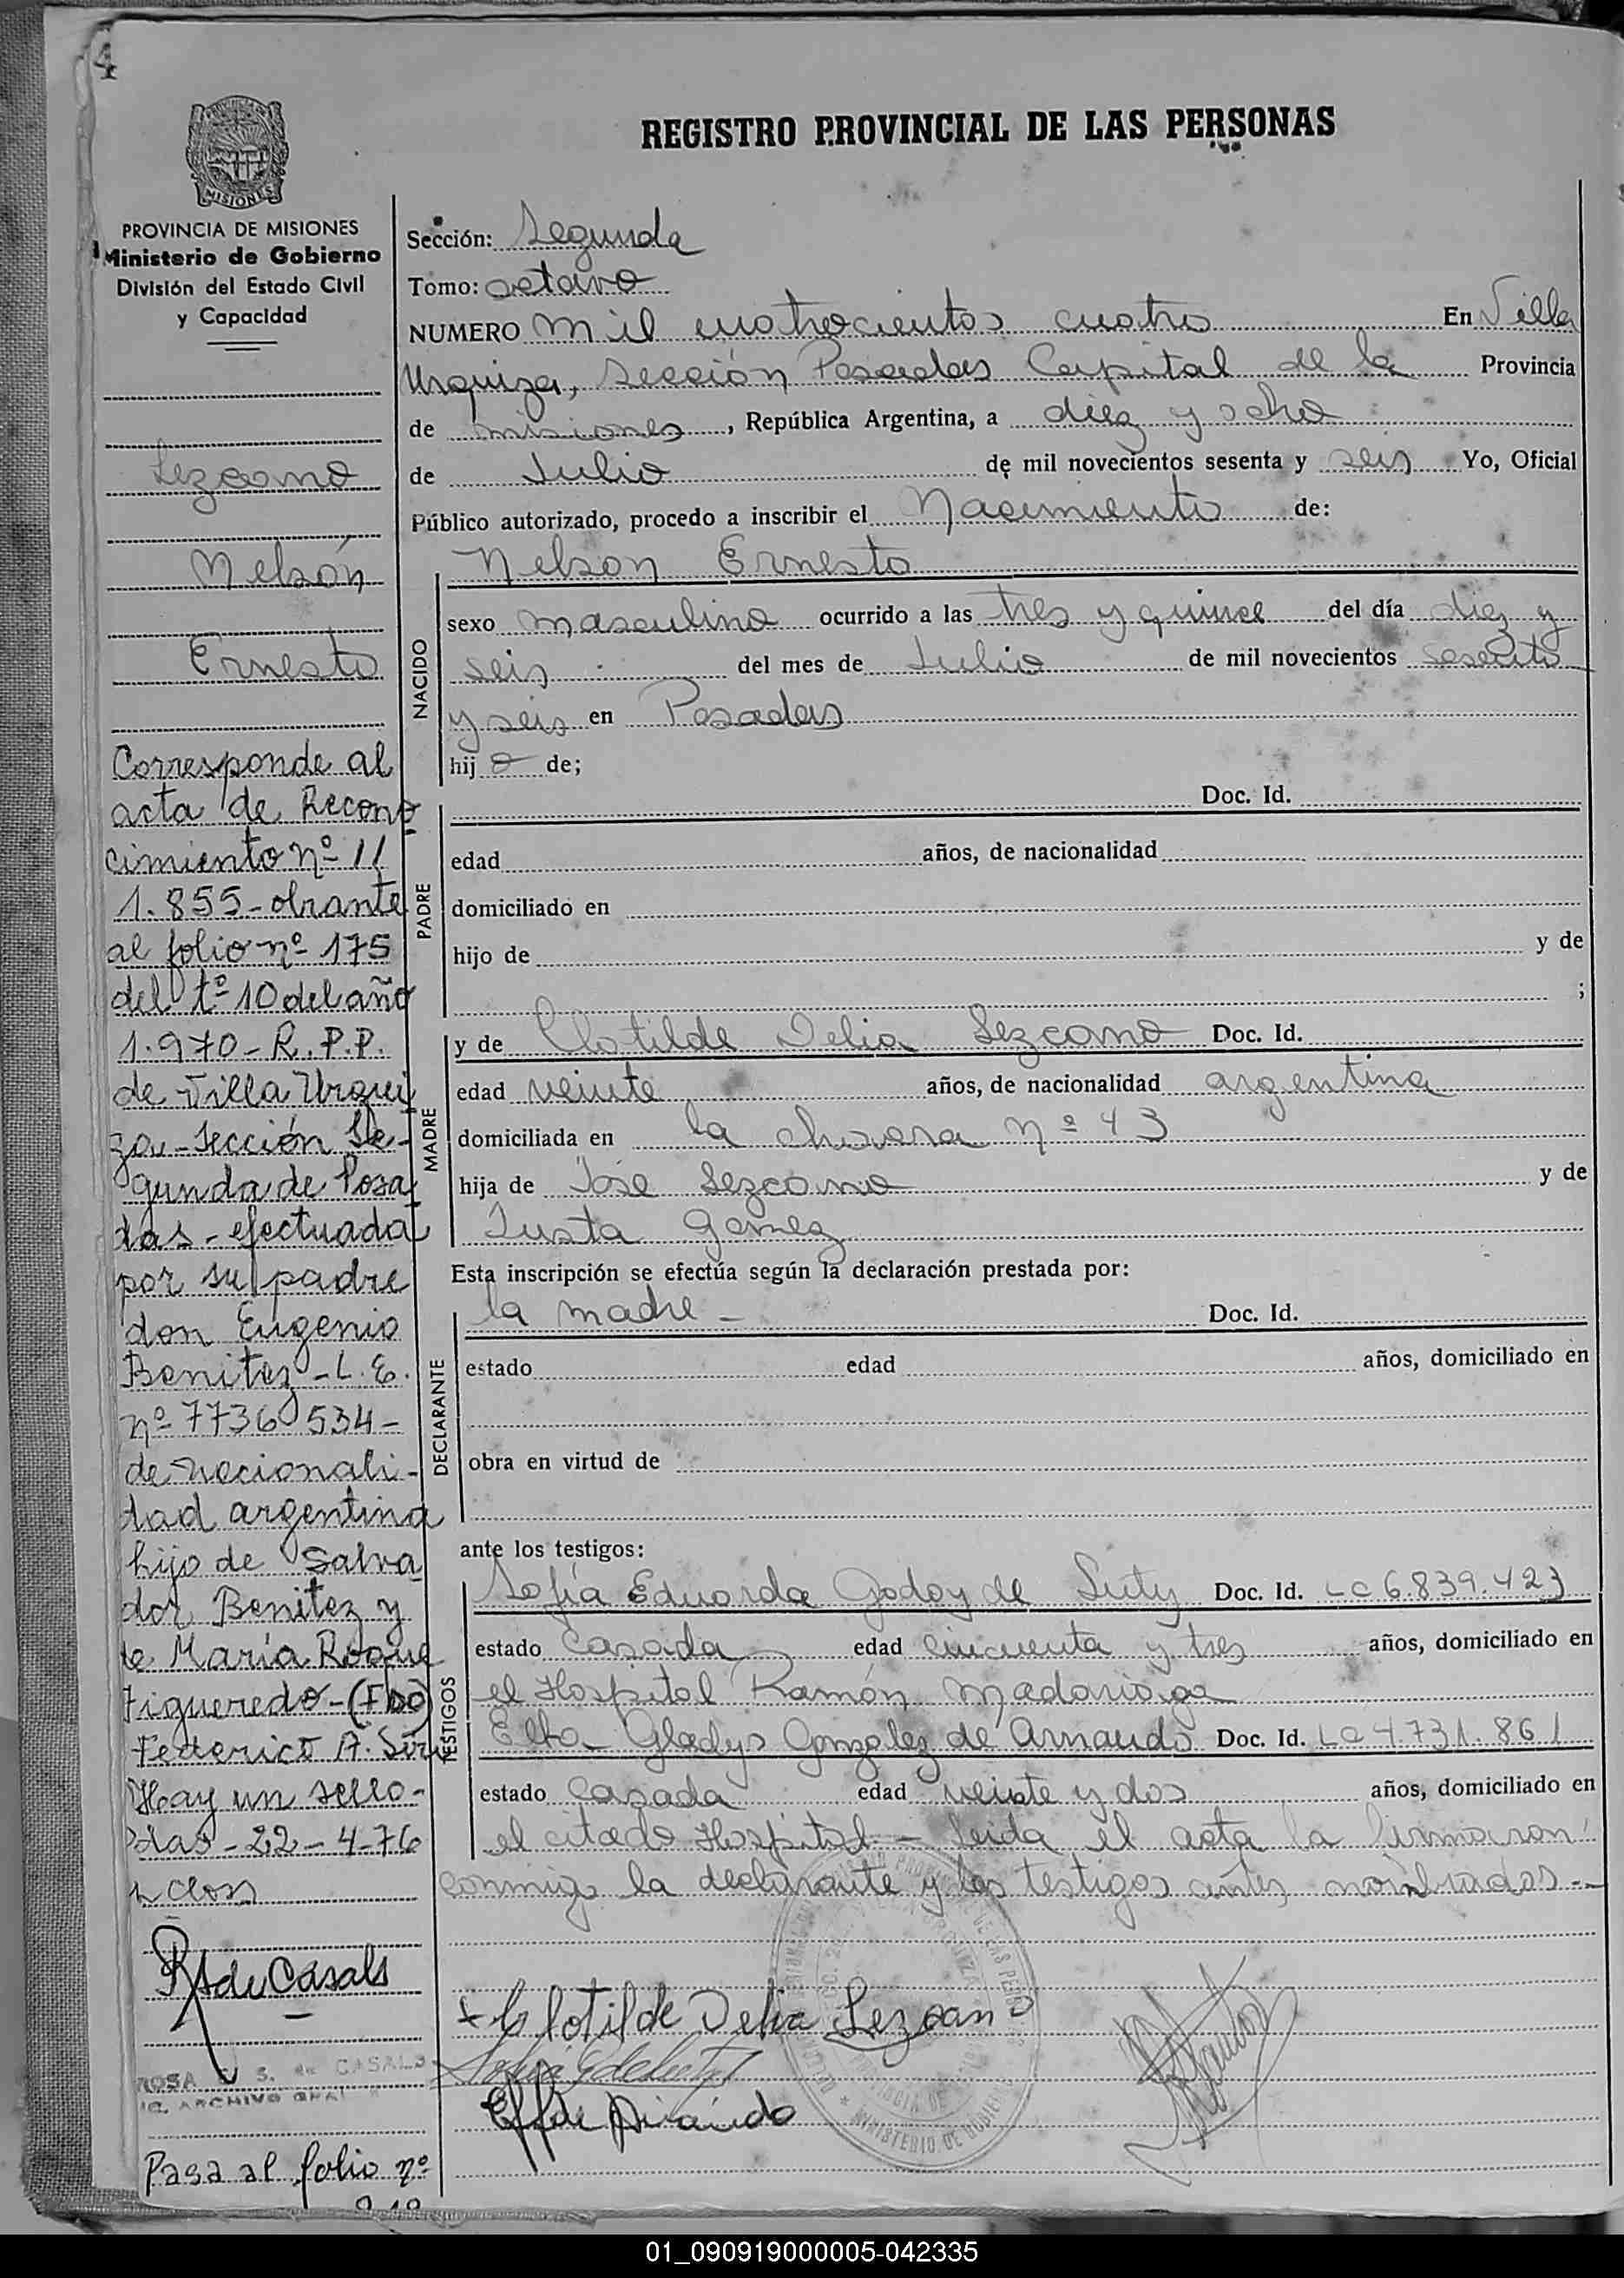 4
REGISTRO PROVINCIAL DE LAS PERSONAS
MISIONES
PROVINCIA DE MISIONES
Ministerio de Gobierno
División del Estado Civil
y Capacidad
Lezcano
Nelsón
Ernesto
Corresponde al
acta de Recono
cimiento nº 11
1.855-obrante
al folio nº 175
del tº 10 del año
1.970-R.P.P.
de Villa Urqui
za-Sección Se-
gunda de Posa
das-efectuada
por su padre
don Eugenio
Benitez-L.E.
nº 7736534-
de nacionali-
dad argentina
hijo de Salva
dor Benitez y
de María Roque
Figueredo-(Fdo)
Federico A.
Hay un sello-
Pdas-22-4-76
R S de Casals
ROSA S. de CASALS
ARCHIVO GRAL
Pasa al folio nº
Sección: Segunda
Tomo: octavo
NUMERO mil cuatrocientos cuatro En Villa
Urquiza, sección Posadas Capital de la Provincia
de misiones, República Argentina, a diez y ocho
de Julio de mil novecientos sesenta y seis Yo, Oficial
Público autorizado, procedo a inscribir el Nacimiento de:
NACIDO
Nelson Ernesto
sexo masculino ocurrido a las tres y quince del día diez y
seis del mes de Julio de mil novecientos sesenta
y seis en Posadas
hijo de;
PADRE
Doc. Id.
edad años, de nacionalidad
domiciliado en
hijo de y de
;
MADRE
y de Clotilde Delia Lezcano Doc. Id.
edad veinte años, de nacionalidad argentina
domiciliada en la chacra nº 43
hija de José Lezcano y de
Justa Gomez
Esta inscripción se efectúa según la declaración prestada por:
DECLARANTE
la madre - Doc. Id.
estado edad años, domiciliado en
obra en virtud de
ante los testigos:
TESTIGOS
Sofía Eduarda Godoy de Suty Doc. Id. LC 6.839.423
estado Casada edad cincuenta y tres años, domiciliado en
el Hospital Ramón Madariaga
Gladys Gonzalez de Arnaudo Doc. Id. LC 4.731.861
estado Casada edad veinte y dos años, domiciliado en
el citado Hospital - Leida el acta la firmaron
conmigo la declarante y los testigos antes nombrados.--
Clotilde Delia Lezcano
MINISTERIO DE GOBIERNO
01_090919000005-042335